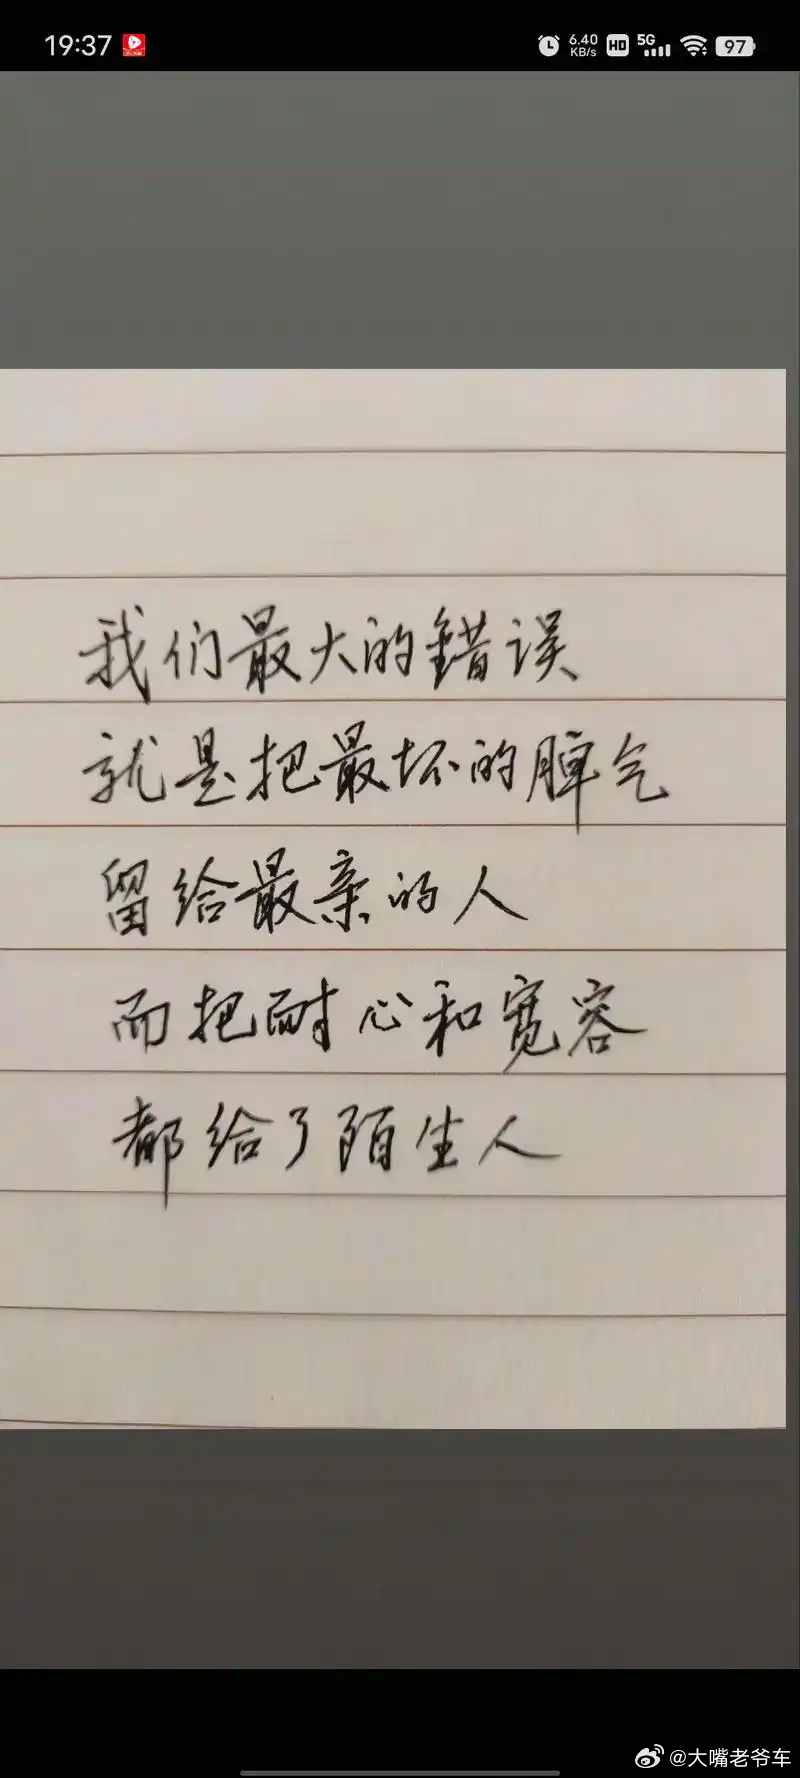 19:37
6.40
KB/s
HD
5G
97
我们最大的错误
就是把最坏的脾气
留给最亲的人
而把耐心和宽容
都给了陌生人
@大嘴老爷车